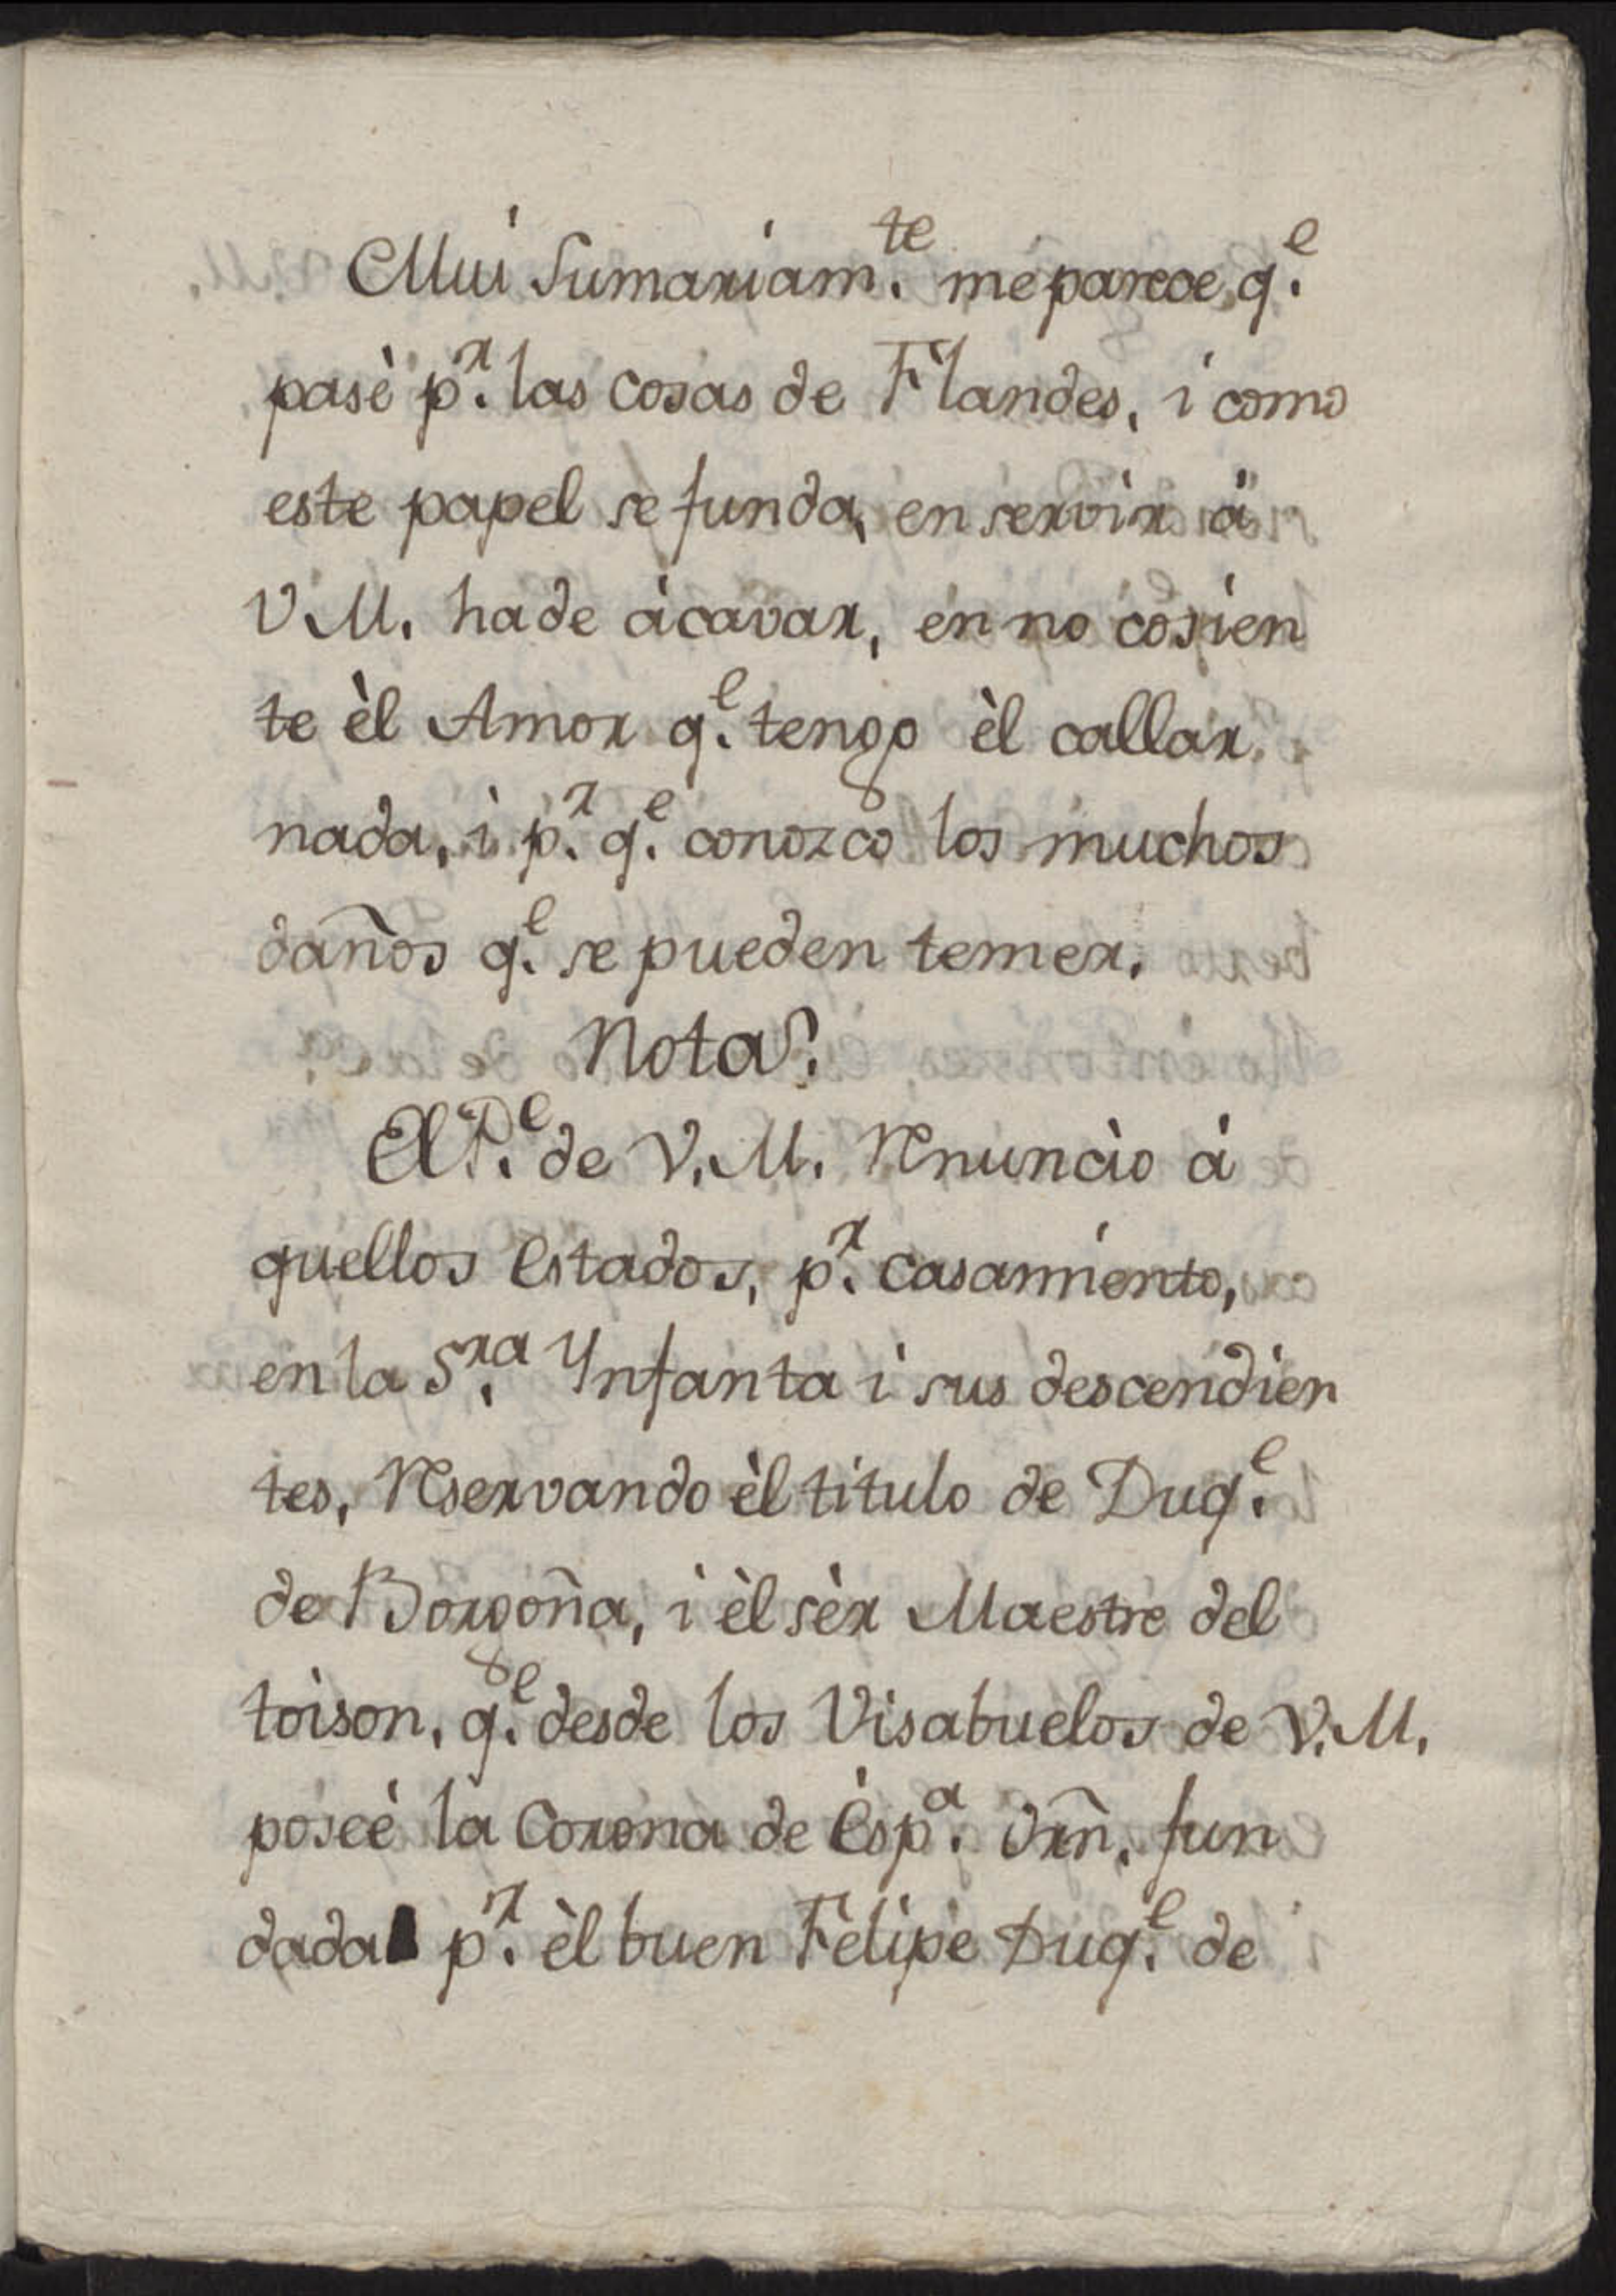 Mui Sumariam.te me parece q.e
pasè p.r las cosas de Flandes, i como
este papel se funda, en servir à
V.M. ha de àcavar, en no cosien
te èl Amor q.e tengo èl callar
nada, i p.r q.e conozco los muchos
daños q.e se pueden temer.
Nota.
El P.e de V.M. Renunciò à
quellos Estados, p.r casamiento,
en la S.ra Ynfanta i sus descendien
tes, Reservando èl titulo de Duq.e
de Borgoña, i èl sèr Maestre del
toison, q.e desde los Visabuelos de V.M.
poseè la Corona de Èsp.a Orñ. fun
dada p.r èl buen Felipe Duq.e de